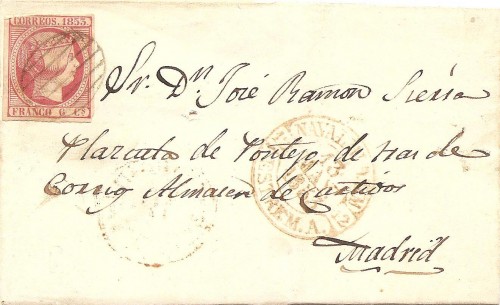 CORREOS. 1853
FRANCO 6 CS
Sr. Dn. José Ramon Sierra
Plazuela de Pontejos de tras de
Correo Almacen de
Madrid